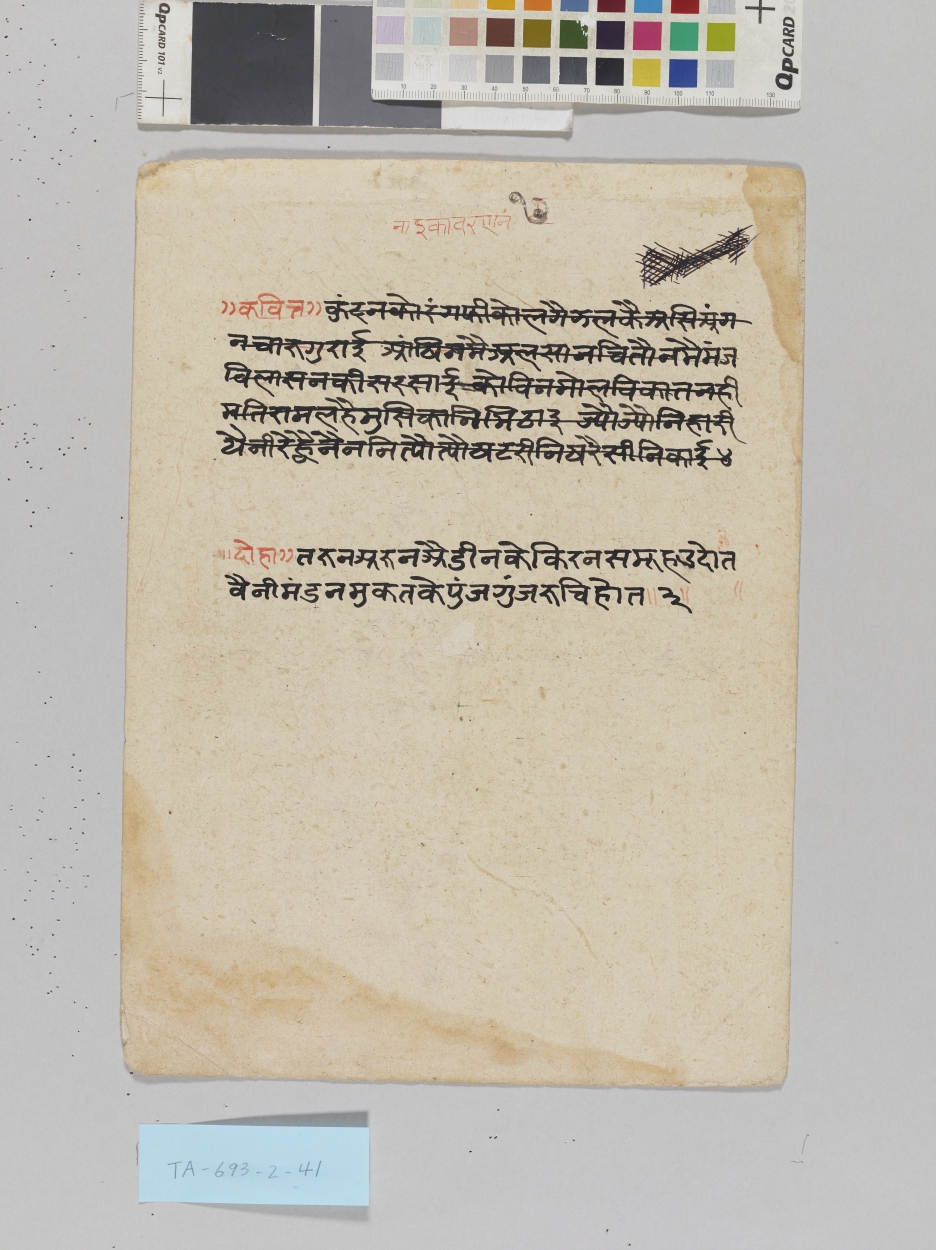 QPCARD 101 v2
QPCARD
10 20 30 40 50 60 70 80 90 100 110 130
नाइकावरएानं
॥कवित्त॥ कुंदनकोरंगफीकोलगैझलकैअसिअंग
नचारुगुराई आंषिनमैअलसानचितौनमैमंज
विलासनकीसरसाई कोविनमोलविकातनही
मतिरामलहैमुसिकानिमिठाइ ज्यौज्यौनिहारी
येनीरेह्वैनैननित्यौत्यौषरीनिषरैसीनिकाई४
॥दोहा॥ तरुनअरुनअैडीनकेकिरनसमूहउदोत
वैनीमंडनमुकतकेपुंजगुंजरुचिहोत॥२॥
TA-693-2-41